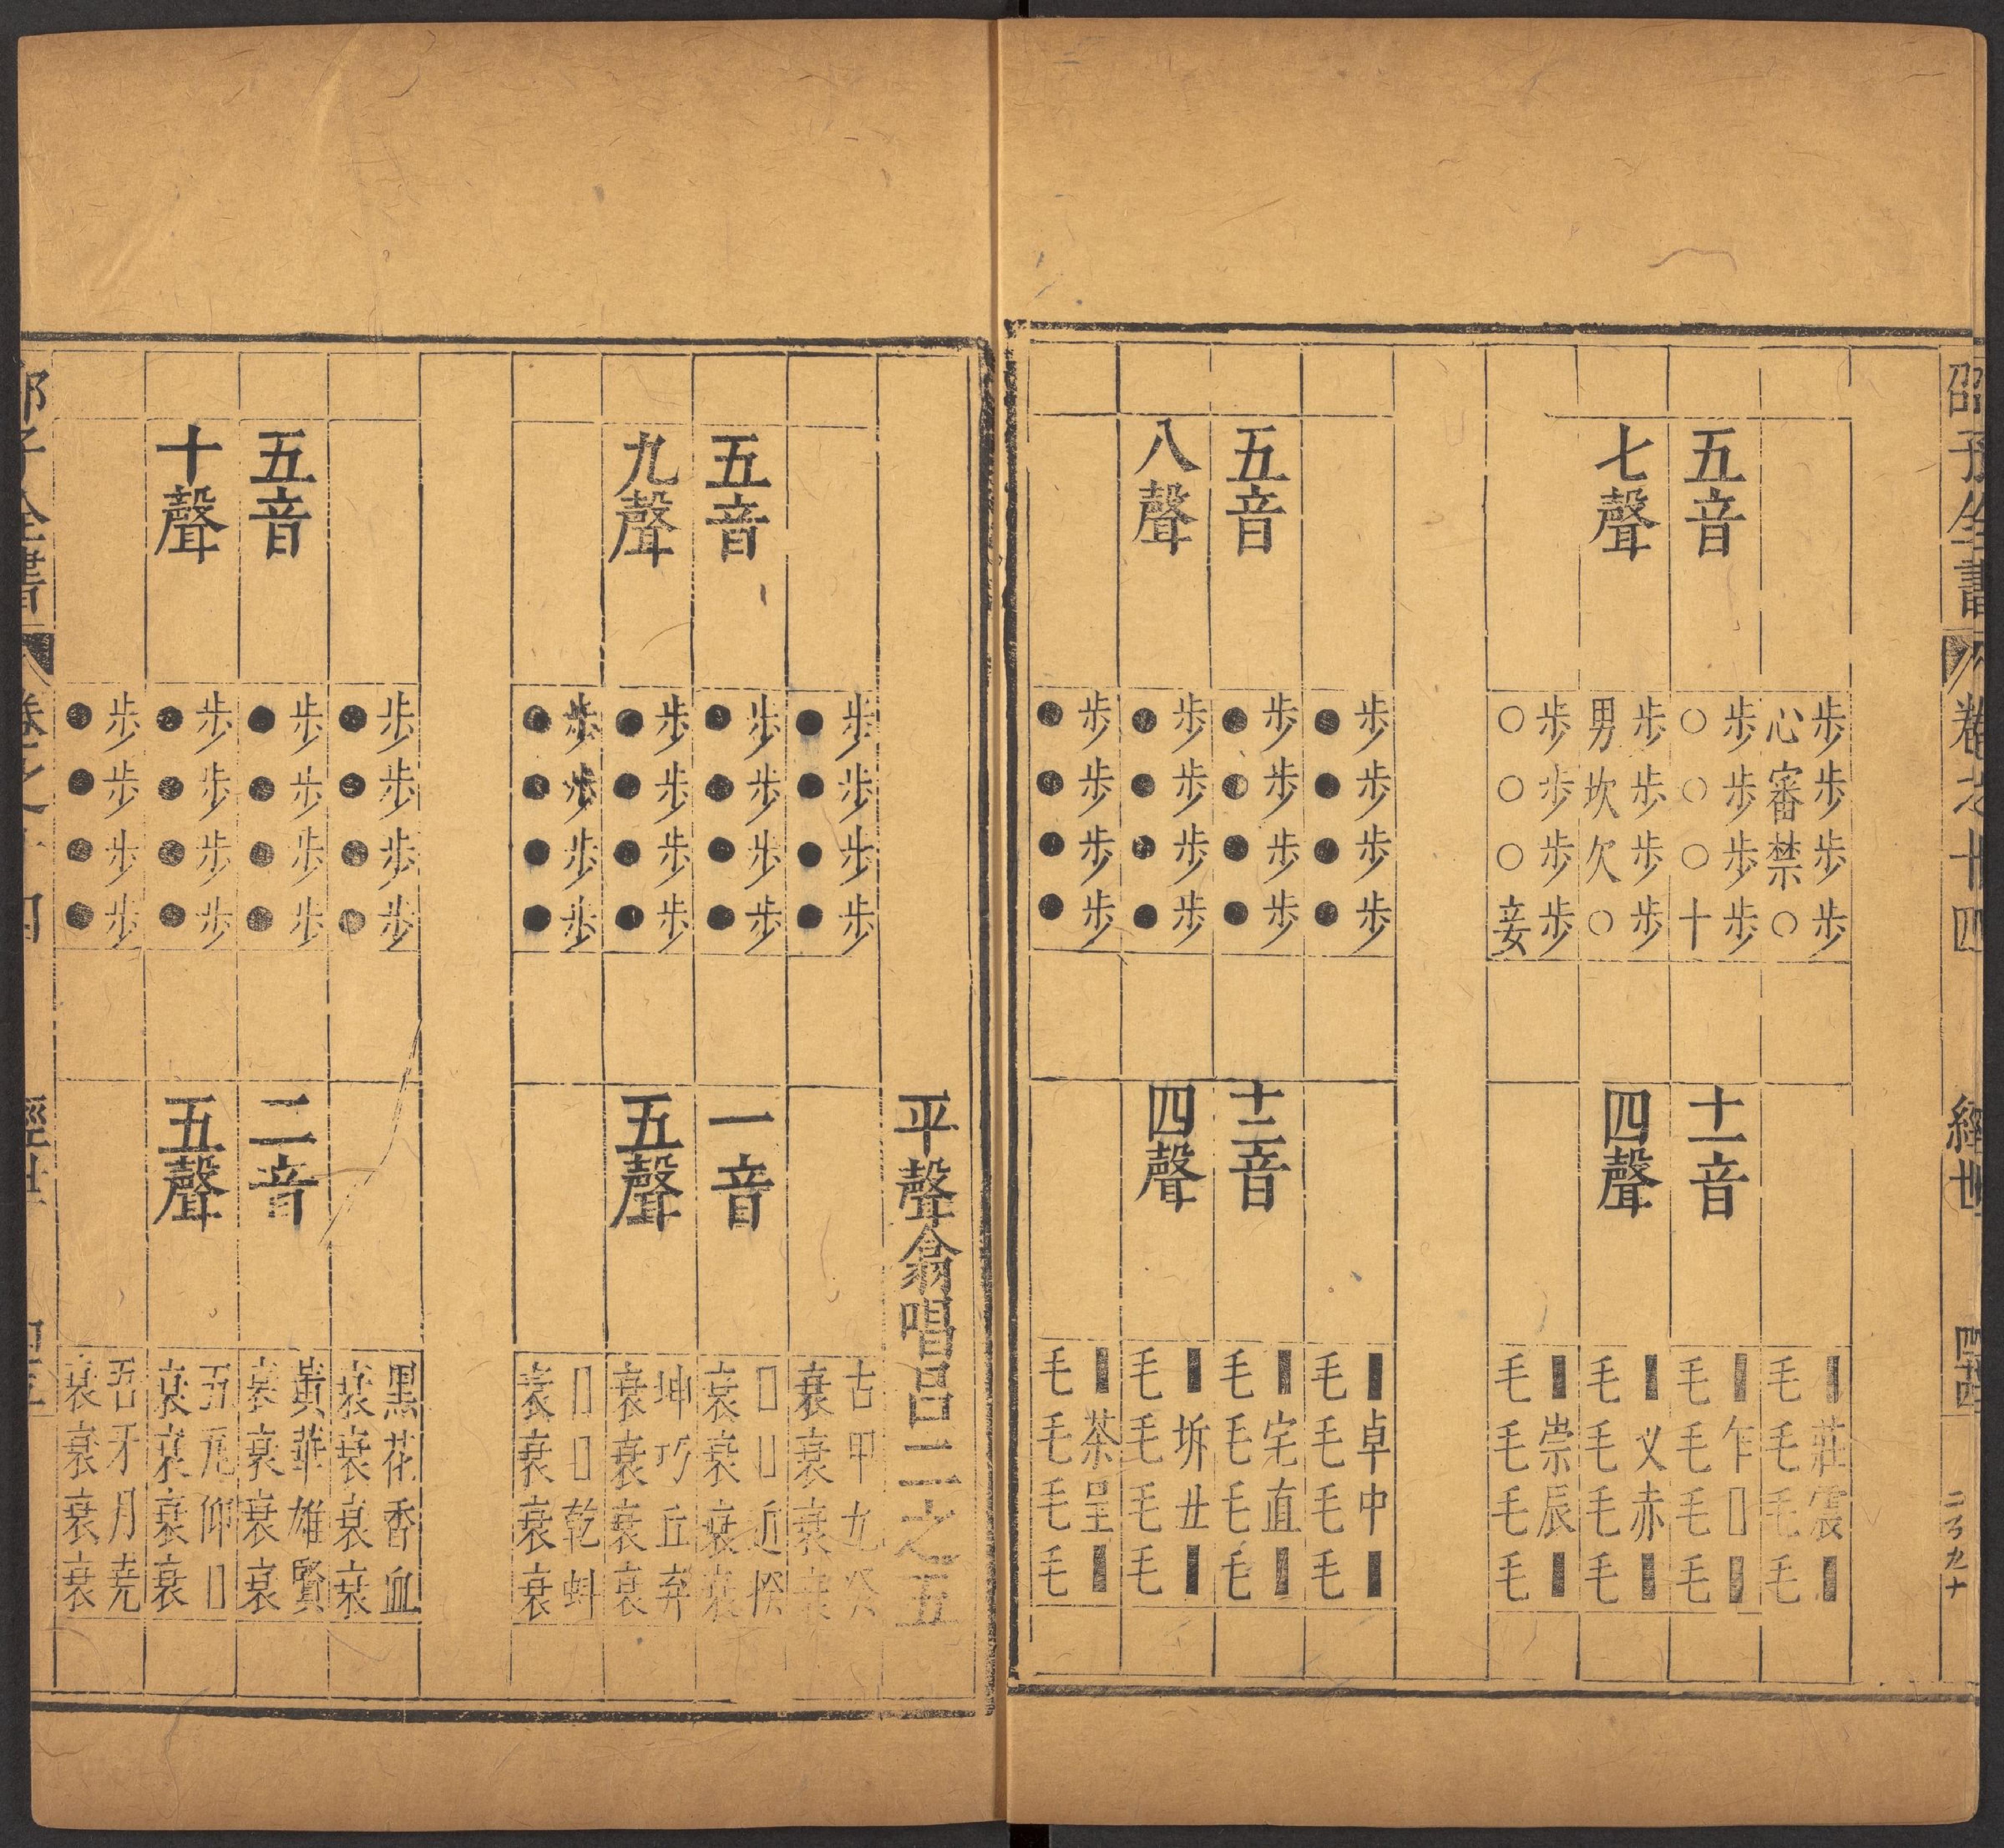 邵子全書 卷之十四 經世 四十四
步步步步
心審禁○
▮莊震▮
毛毛毛毛
五音
步步步步
○○○十
十一音
▮乍▯▮
毛毛毛毛
七聲
步步步步
男坎欠○
四聲
▮叉赤▮
毛毛毛毛
步步步步
○○○妾
▮崇辰▮
毛毛毛毛
步步步步
●●●●
▮卓中▮
毛毛毛毛
五音
步步步步
●●●●
十二音
▮宅直▮
毛毛毛毛
八聲
步步步步
●●●●
四聲
▮坼丑▮
毛毛毛毛
步步步步
●●●●
▮茶呈▮
毛毛毛毛
平聲翕唱呂二之五
步步步步
●●●●
古甲九癸
衰衰衰衰
五音
步步步步
●●●●
一音
▯▯近揆
衰衰衰衰
九聲
步步步步
●●●●
五聲
坤巧丘弃
衰衰衰衰
步步步步
●●●●
▯▯乾蚪
衰衰衰衰
步步步步
●●●●
黑花香血
衰衰衰衰
五音
步步步步
●●●●
二音
黃華雄賢
衰衰衰衰
十聲
步步步步
●●●●
五聲
五瓦仰▯
衰衰衰衰
步步步步
●●●●
吾牙月堯
衰衰衰衰
邵子全書 卷之十四 經世